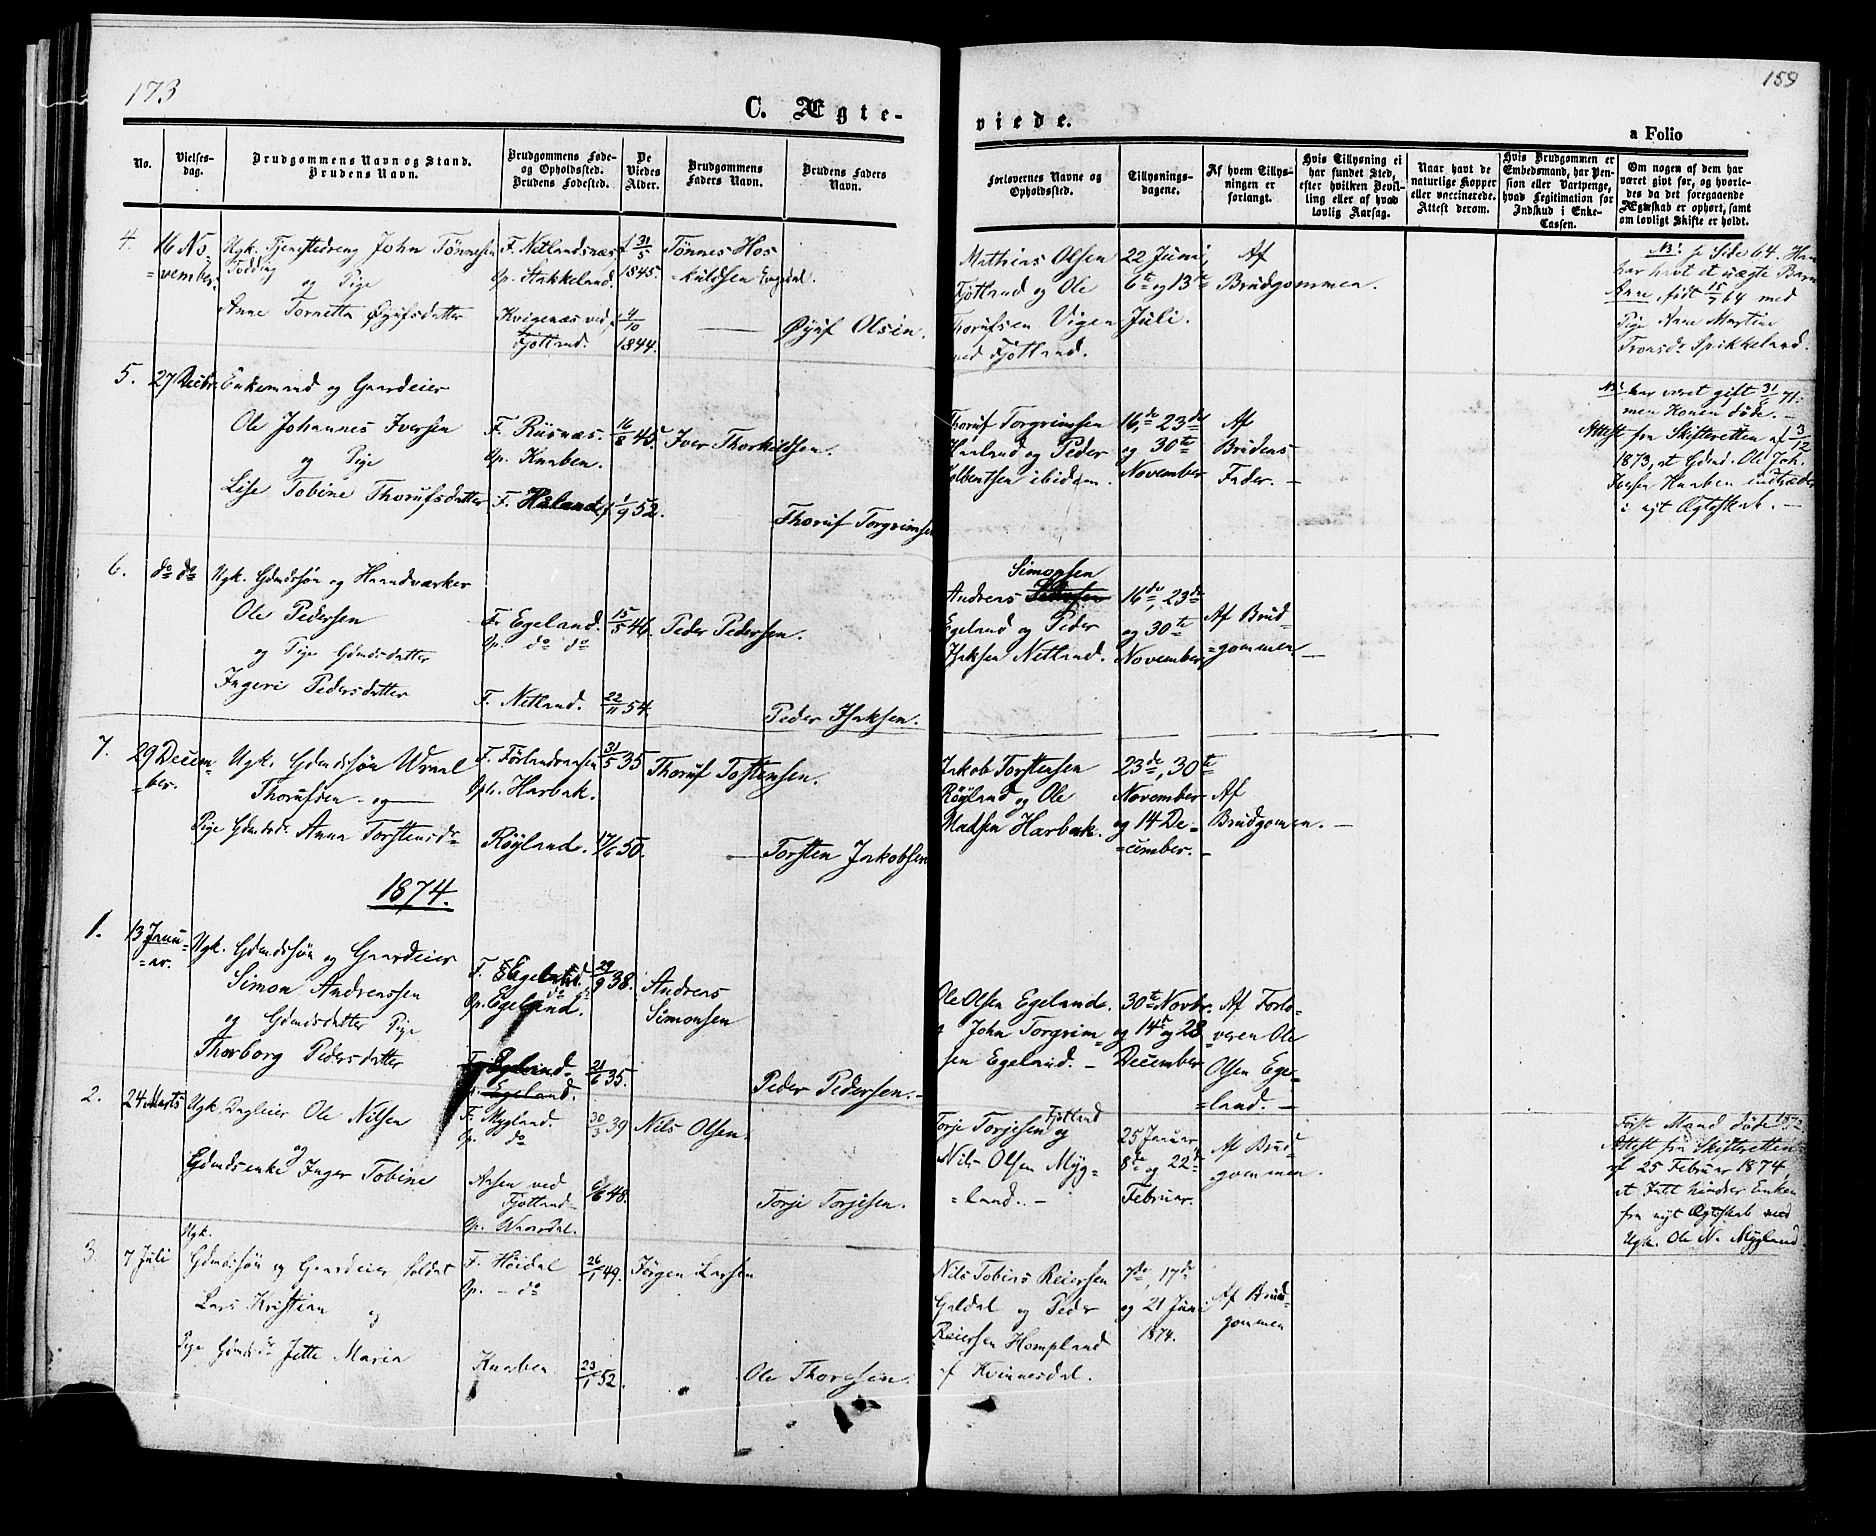 173
159
C. Ægte-
viede.
a Folio
No.
Vielses-
dag.
Brudgommens Navn og Stand.
Brudens Navn.
Brudgommens Føde-
og Opholdssted.
Brudens Fødested.
De
Viedes
Alder.
Brudgommens
Faders Navn.
Brudens Faders
Navn.
Forlovernes Navne og
Opholdssted.
Tillysnings-
dagene.
Af hvem Tillys-
ningen er
forlangt.
Hvis Tillysning ei
har fundet Sted,
efter hvilken Bevil-
ling eller af hvad
lovlig Aarsag.
Naar havt de
naturlige Kopper
eller vaccinerede.
Attest derom.
Hvis Brudgommen er
Embedsmand, har Pen-
sion eller Vartpenge,
hvad Legitimation for
Indskud i Enke-
Cassen.
Om nogen af dem har
været givt før, og hvorle-
des da det foregaaende
Ægteskab er ophørt, samt
om lovligt Skifte er holdt.
4.
16 No-
=vember.
Ugk. Tjenestedreng John Tønnesen
og Pige
Anne Tornetta Øyufsdatter
F. Netlandsnæs
Op. Stakkeland.
Kvigenæs ved
Fjotland.
f 31/5
1845.
4/10
1844.
Tønnes Hos
=kuldsen
Øyuf Olsen.
Mathias Olsen
Fjotland og Ole
Thorufsen Vigen
ved Fjotland.
22 Juni,
6te og 13te
Juli.
Af
Brudgommen.
NB. se Side 64. Han
har havt et uægte Barn
Anne, født 15/7 64 med
Pige Anne Martine
5.
27 Decbr.
Enkemand og Gaardeier
Ole Johannes Iversen
og Pige
Lise Tobine Thorufsdatter
F. Risnæs.
Op. Knaben.
F. Haaland
16/8 45
1/9 52.
Iver Thorkildsen.
Thoruf Torgrimsen
Thoruf Torgrimsen
Haaland og Peder
ibidem.
16de, 23de
og 30te
November
Af
Brudens
Fader. -
NB. har været gift 31/ 71.
men Konen døde. -
Attest fra Skifteretten af 3/12
1873, at Gdmd. Ole Joh.
Iversen Knaben indtræder
i nyt Ægteskab. -
6.
do do
Ugk. Gdmdssøn og Haandværker
Ole Pedersen
og Pige Gdmdsdatter
Ingeri Pedersdatter
F. Egeland.
Op. do do
F. Netland.
15/5 46.
22/11 54.
Peder Pedersen.
Peder Isaksen.
Simonsen
Andreas
Egeland og Peder
Isaksen Netland.
16de, 23de
og 30te
November
Af Brud-
=gommen -
7.
29 Decem-
=ber.
Ugk. Gdmdssøn Wraal
Thorufsen og
Pige Gdmdsdr. Anna Torstensdr
Op. Harbak.
Røyland.
31/5 35
17/6 50.
Thoruf Tostensen.
Torsten Jakobsen
Jakob Torstensen
Røyland og Ole
Madsen Harbak.
23de, 30te
November
og 14 De-
=cember. -
Af
Brudgomen. -
1874.
1.
13 Janu-
=ar.
Ugk. Gdmdssøn og Gaardeier
Simon Andreassen
og Gdmdsdatter Pige
Thorborg Pedersdatter
F. Egeland.
Op. Egeland.
F. Egeland.
29/9 38.
21/6 35.
Andreas
Simonsen
Peder Pedersen. -
Ole Olsen Egeland.
John Torgrim=
sen Egeland. -
30te Novbr.
og 14de og 28
December
Af Forlo-
veren Ole
Olsen Ege-
=land. -
2.
24 Marts
Ugk. Ole Nilsen
og
Gdmdsenke Inger Tobine
F. Mygland.
Op. do
Aasen ved
Fjotland.
Op. Waardal.
30/3 39
6/6 48.
Nils Olsen.
Torje Torjesen.
Torje Torjesen Fjotland
og
Nils Olsen Myg-
=land. -
25 Januar
8de og 22de
Februar.
Af Brud-
gommen.
Første Mand døde 1872
Attest fra Skifteretten
af 25 Februar 1874,
at Intet hindrer Enken
fra nyt Ægteskab med
Ugk. Ole N. Mygland.
3.
7 Juli
Ugk.
Gdmdssøn og Gaardeier Soldat
Lars Kristian
og
Pige Gdmdsdr Jette Maria
F. Høidal
Op. - do
Knaben
26/1 49.
23/1 52.
Jørgen Larsen
Ole Thoresen.
Nils Tobias Reiersen
Galdal og Peder
Reiersen Hompland
af Kvinnesdal.
7de, 17de
og 21 Juni
1874.
Af Brud-
gommen